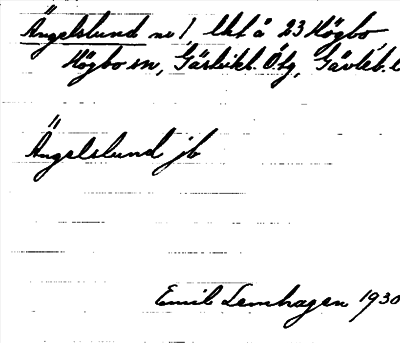 Ängelslund nr 1 lht å 23 Högbo
Högbo sn, Gästrikl. Ö. tg, Gävleb. l
Ängelslund jb
Emil Lemhagen 1930